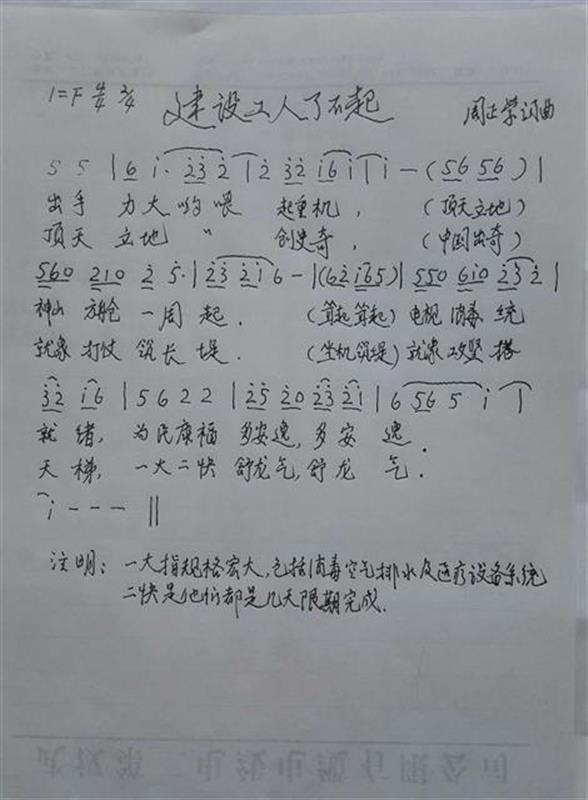 1=F 4/4 2/4 建设工人了不起 周士荣词曲
5 5 | 6 i· 2 3 2 | 2 3 2 i 6 i | i — (5 6 5 6) |
出手 力大哟喂 起重机， (顶天立地)
顶天 立地 〃 创史奇， (中国出奇)
5 6 0 2 1 0 2 5· | 2 3 2 i 6 — | (6 2 i 6 5) | 5 5 0 6 i 0 2 3 2 |
神山 方舱 一周 起． (算起算起) 电视 消毒 统
就象 打仗 筑长 堤． 就象 攻坚 搭
3 2 i 6 | 5 6 2 2 | 2 5 2 0 2 3 2 1 | 6 5 6 5 i |
就 绪， 为民康福 多安逸，多 安 逸．
天 梯， 一大二快 舒龙气，舒 龙 气．
i - - - ‖
注明：一大指规格宏大，包括消毒空气排水及医疗设备系统
二快是他们都是几天限期完成．